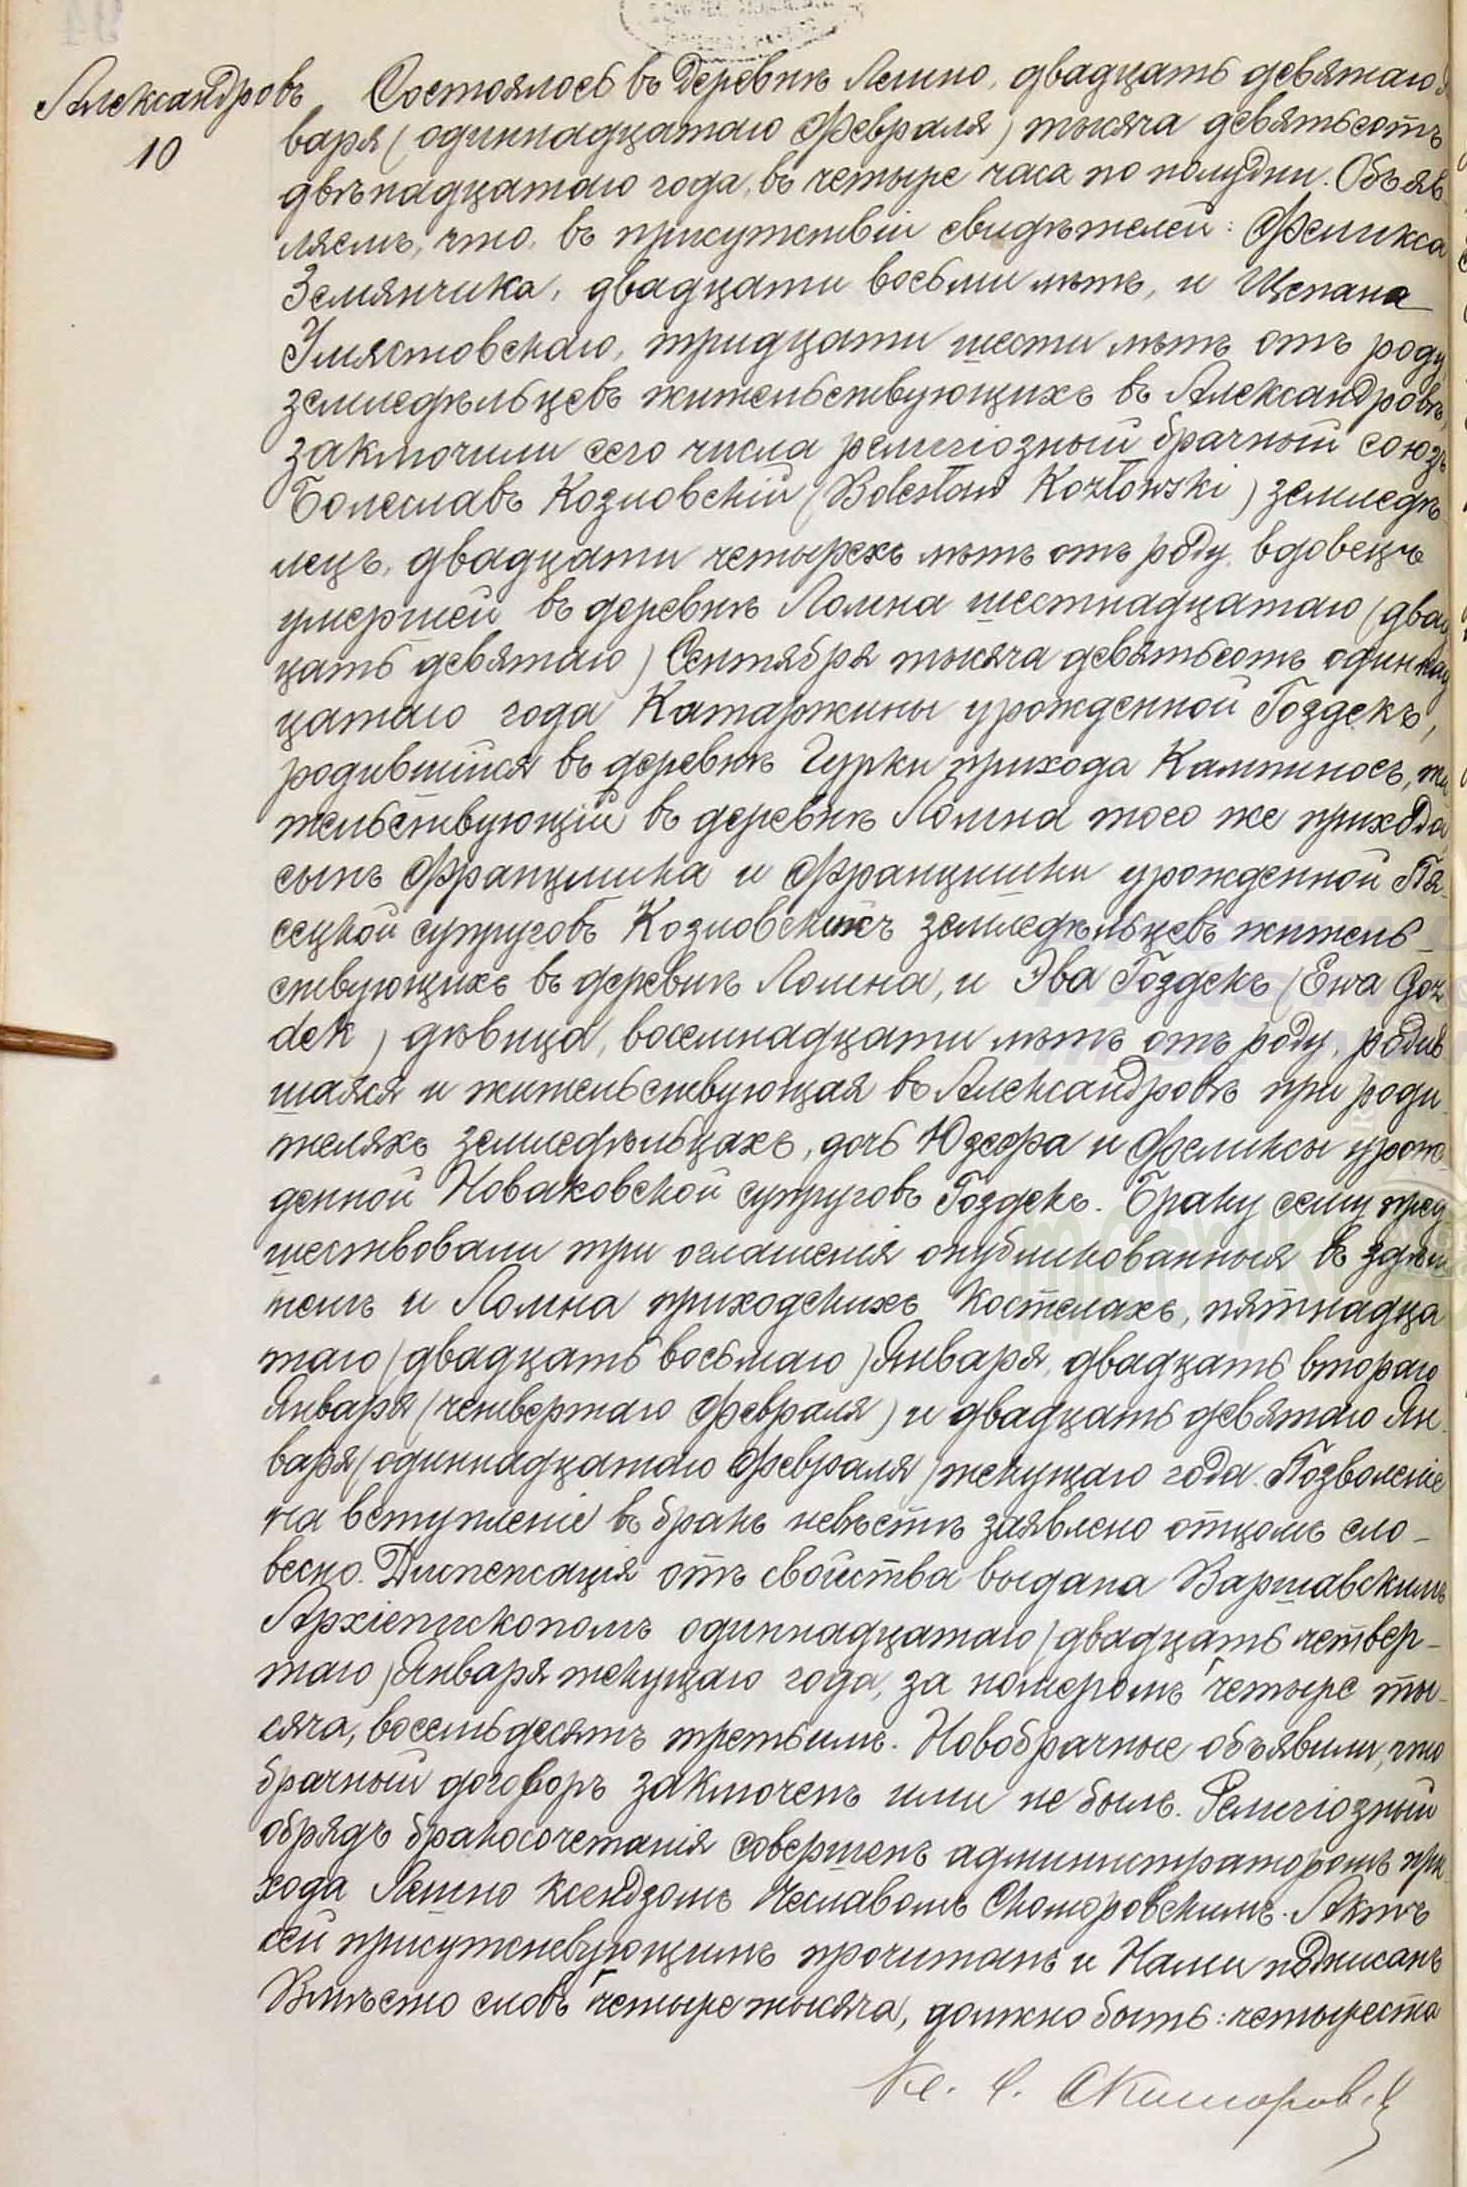 Александровъ
10
Состоялось въ деревнѣ Лешно, двадцать девятаго Я
варя (одиннадцатаго Февраля) тысяча девятьсотъ
двѣнадцатаго года, въ четыре часа по полудни. Объяв
ляемъ, что, въ присутствіи свидѣтелей: Феликса
Землянчика, двадцати восьми лѣтъ, и Щепана
Улястовскаго, тридцати шести лѣтъ отъ роду,
земледѣльцевъ жительствующихъ въ Александровѣ,
заключили сего числа религіозный брачный союзъ
Болеславъ Козловскій (Bolesław Kozłowski) земледѣ
лецъ, двадцати четырехъ лѣтъ отъ роду, вдовецъ
умершей въ деревнѣ Ломна шестнадцатаго (двад
цать девятаго) Сентября тысяча девятьсотъ одиннад
цатаго года Катаржины урожденной Гоздекъ,
родившійся въ деревнѣ Гурки прихода Кампиносъ, жи
тельствующій въ деревнѣ Ломна того же прихода
сынъ Францишка и Францишки урожденной Пя
сецкой супруговъ Козловскихъ земледѣльцевъ житель-
ствующихъ въ деревнѣ Ломна, и Эва Гоздекъ (Ewa Goz
dek) дѣвица, восемнадцати лѣтъ отъ роду, родив
шаяся и жительствующая въ Александровѣ при роди
теляхъ земледѣльцахъ, дочь Юзефа и Феликсы урож
денной Новаковской супруговъ Гоздекъ. Браку сему пред
шествовали три оглашенія опубликованныя въ здѣш
немъ и Ломна приходскихъ костелахъ, пятнадца
таго (двадцать восьмаго) Января, двадцать втораго
Января (четвертаго Февраля) и двадцать девятаго Ян
варя (одиннадцатаго Февраля) текущаго года. Позволеніе
на вступленіе въ бракъ невѣстѣ заявлено отцомъ сло-
весно. Диспенсація отъ свойства выдана Варшавскимъ
Архіепископомъ одиннадцатаго (двадцать четвер-
таго) Января текущаго года, за номеромъ "четыре ты-
сяча, восемьдесятъ третьимъ. Новобрачные объявили, что
брачный договоръ заключенъ ими не былъ. Религіозный
обрядъ бракосочетанія совершенъ администраторомъ при
хода Лешно Ксендзомъ Чеславомъ Скоморовскимъ. Актъ
сей присутствующимъ прочитанъ и Нами подписанъ
Вмѣсто словъ "четыре тысяча, должно быть: четыреста
Кс. Ч. Скоморовс